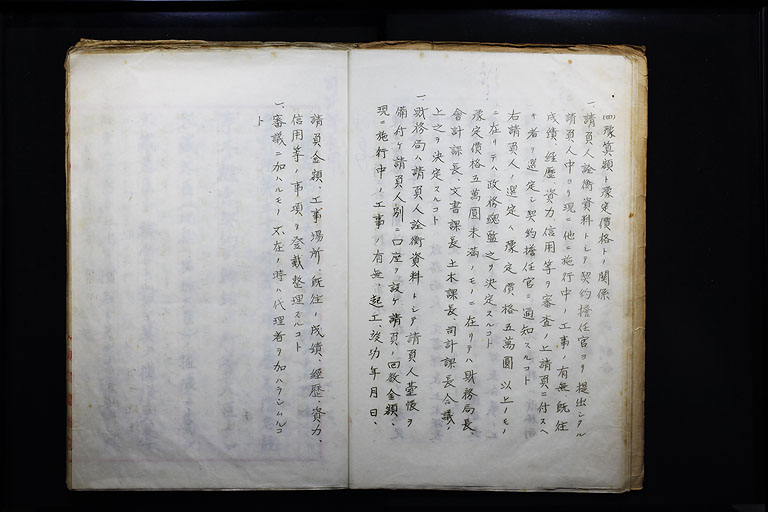 (四)豫算額ト豫定價格トノ關係
一、請負人詮衡資料トシテ契約擔任官ヨリ提出シタル
請負人中ヨリ現ニ他ニ施行中ノ工事ノ有無既往
成績、經歷、資力信用等ヲ審査ノ上請負ニ付スヘ
キ者ヲ選定シ契約擔任官ニ通知スルコト
右請負人ノ選定ハ豫定價格五萬圓以上ノモノ
ニ在リテハ政務總監之ヲ決定スルコト
豫定價格五萬圓未滿ノモノニ在リテハ財務局長、
會計課長、文書課長、土木課長、司計課長合議ノ
上之ヲ決定スルコト
一、財務局ハ請負人詮衡資料トシテ請負人臺帳ヲ
備付ケ請負人別ニ口座ヲ設ケ請負ノ回數金額、
現ニ施行中ノ工事ノ有無、起工、竣功年月日、
請負金額、工事場所、既往ノ成績、經歷、資力、
信用等ノ事項ヲ登載整理スルコト
一、審議ニ加ハルモノ不在ノ時ハ代理者ヲ加ハラシムルコ
ト